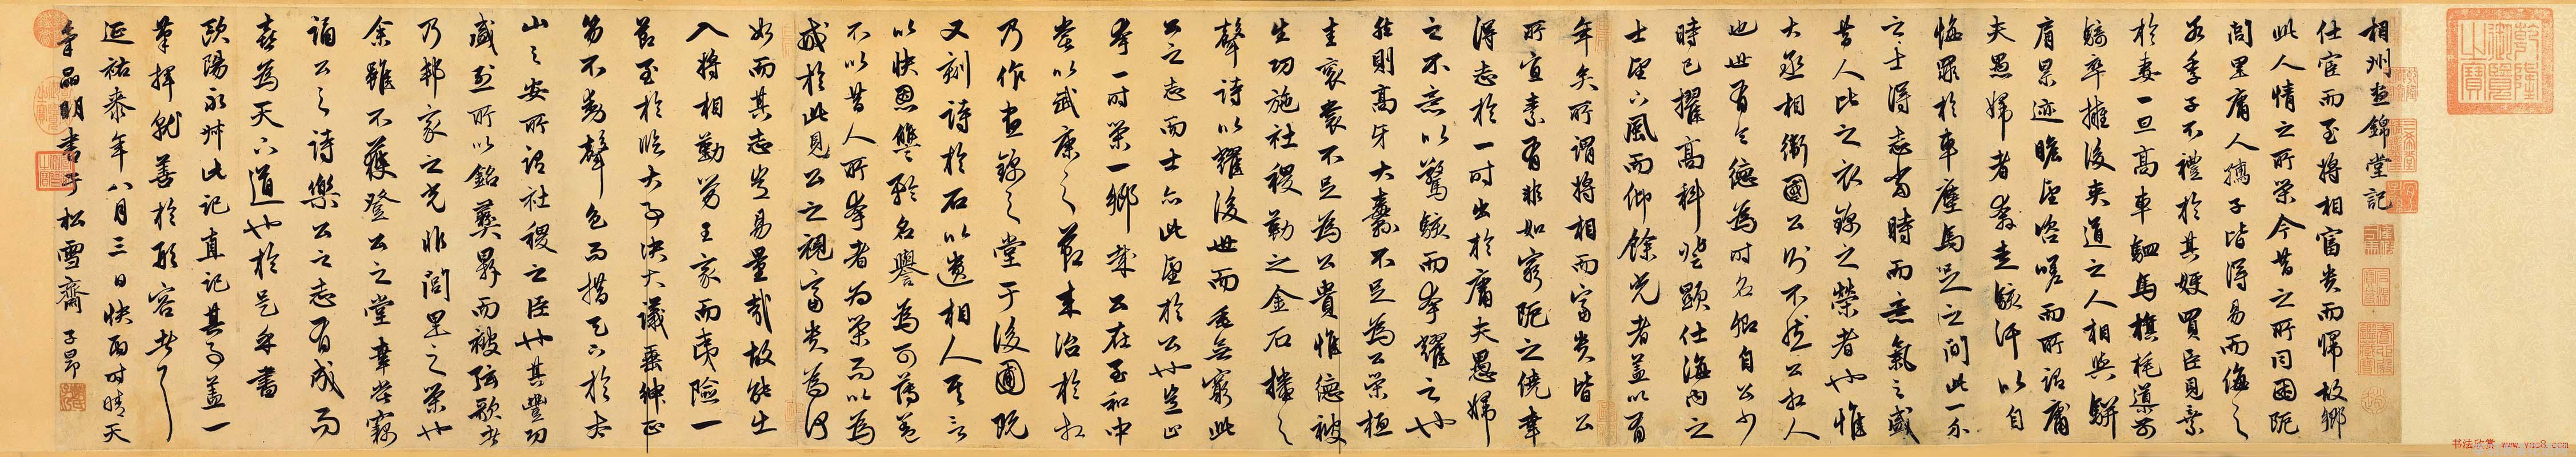 相州昼錦堂記
仕宦而至將相富貴而歸故鄉
此人情之所榮今昔之所同困阨
閭里庸人孺子皆得易而侮之
若季子不禮於其嫂買臣見棄
於妻一旦高車駟馬旗旄導前
騎卒擁後夾道之人相與駢
肩累迹瞻望咨嗟而所謂庸
夫愚婦者奔走駭汗以自
悔罪於車塵馬足之間此一介
之士得志當時而意氣之盛
昔人比之衣錦之榮者也惟
大丞相衛國公則不然公相人
也世有令德為時名卿自公少
時已擢高科登顯仕海內之
士望下風而仰餘光者蓋以有
年矣所謂將相而富貴皆公
所宜素有非如窮阨之僥幸
得志於一時出於庸夫愚婦
之不意以驚駭而夸耀之也
然則高牙大纛不足為公榮桓
圭袞裳不足為公貴惟德被
生功施社稷勒之金石播之
聲詩以耀後世而垂無窮此
公之志而士亦此望於公也豈止
夸一時榮一鄉哉公在至和中
嘗以武康之節來治於相
乃作昼錦之堂于後圃既
又刻詩於石以遺相人其言
以快恩讎矜名譽為可薄蓋
不以昔人所夸者為榮而以為
戒於此見公之視富貴為何
如而其志豈易量哉故能出
入將相勤勞王家而夷險一
節至於臨大事決大議垂紳正
笏不動聲色而措天下於太
山之安所謂社稷之臣也其豐功
盛烈所以銘彝鼎而被弦歌者
乃邦家之光非閭里之榮也
余雖不獲登公之堂幸嘗竊
誦公之詩樂公之志有成而
喜為天下道也於是乎書
歐陽永叔此記真記其事蓋一
筆揮就善於形容者
延祐泰年八月三日快雨時晴天
氣品明書于松雪齋 子昂
乾隆御覽之寶
书法欣赏 www.yac8.com